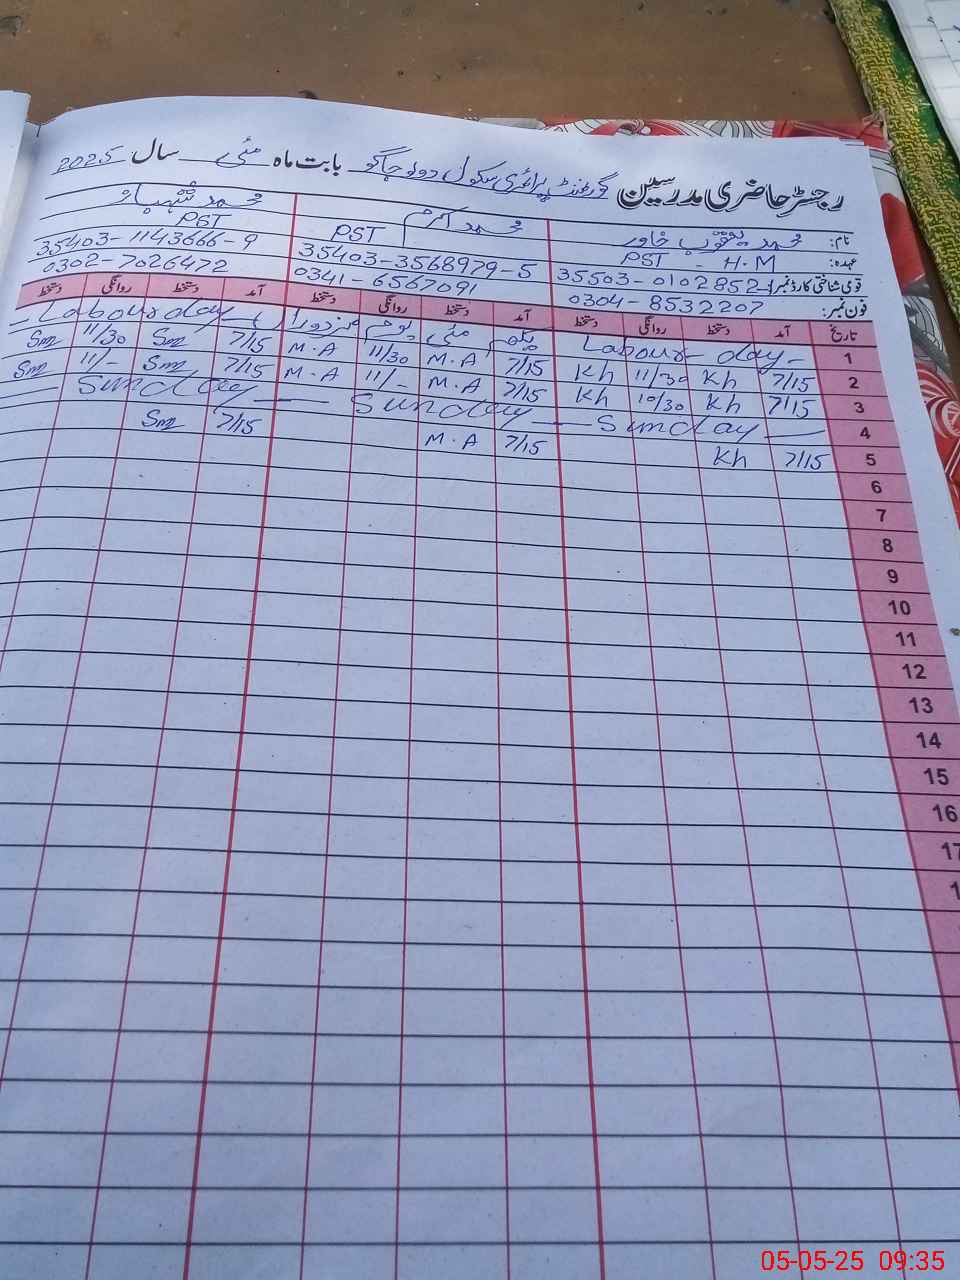 رجسٹر حاضری مدرسین گورنمنٹ پرائمری سکول دولو جاگو بابت ماہ مئی سال 2025
نام: محمد یعقوب خاور محمد اکرم محمد شہباز
عہدہ: PST - H.M PST PST
قومی شناختی کارڈ نمبر: 35503-0102852-1 35403-3568979-5 35403-1143666-9
فون نمبر: 0304-8532207 0341-6567091 0302-7026472
تاریخ آمد دستخط روانگی دستخط آمد دستخط روانگی دستخط آمد دستخط روانگی دستخط
1 Labour day یکم مئی یوم مزدوراں Labour day
2 7/15 Kh 11/30 Kh 7/15 M.A 11/30 M.A 7/15 Sm 11/30 Sm
3 7/15 Kh 10/30 Kh 7/15 M.A 11/- M.A 7/15 Sm 11/- Sm
4 Sunday Sunday Sunday
5 7/15 Kh 7/15 M.A 7/15 Sm
6
7
8
9
10
11
12
13
14
15
16
17
05-05-25 09:35